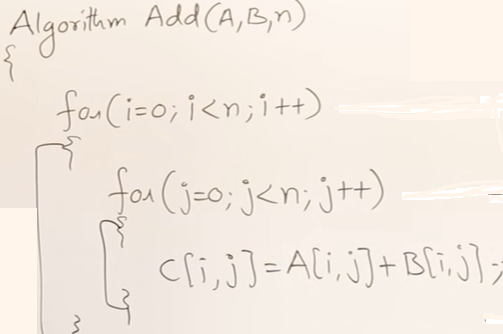 Algorithm Add(A,B,n)
{
for(i=0; i<n; i++)
{
for(j=0; j<n; j++)
{
C[i,j]=A[i,j]+B[i,j];
}
}